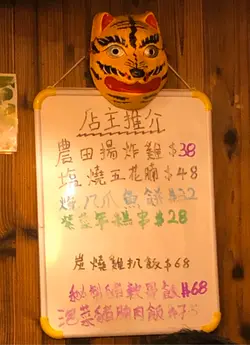 店主推介
農田揚炸雞$38
塩燒五花腩$48
燒八爪魚餅$32
年糕串$28
炭燒雞扒飯$68
軟骨飯$68
泡菜豬腩肉飯